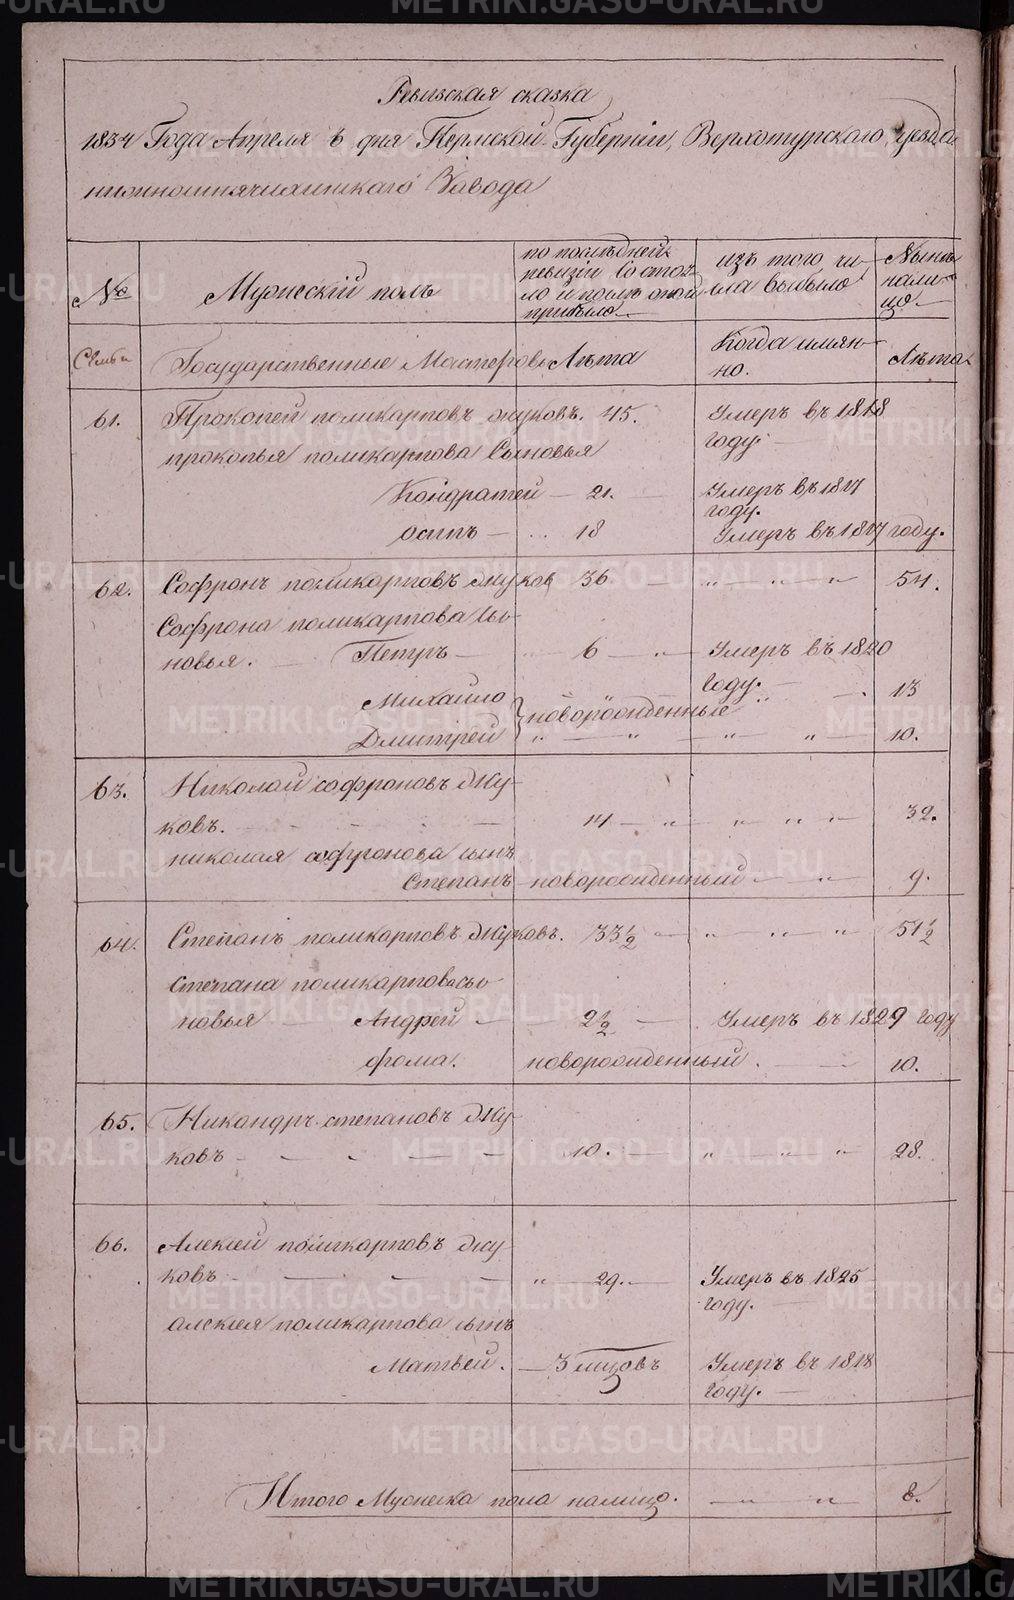 Ревизская сказка
1834 Года Апреля 6 дня Пермской Губернии, Верхотурского уезда
Завода
№
Мужескій полъ
по последней ревизіи состояло и после оной прибыло
изъ того числа выбыло
Ныне налицо
Семьи
Государственные Мастеровы
Лѣта
Когда имянно.
Лѣта
61. Прокопей поликарповъ жуковъ. 45. Умеръ въ 1818 году.
прокопья поликарпова Сыновья
Кондратей — 21. Умеръ въ 1817 году.
осипъ — 18 Умеръ въ 1817 году.
62. Софронъ поликарповъ жуков 36 — „ — „ — „ 54.
Софрона поликарпова сыновья. Петръ — 6 — „ — Умеръ въ 1820 году.
Михайло новорожденные 13
Дмитрей „ — „ — „ „ — 10.
63. Николай софроновъ жуковъ. 14 — „ „ „ „ 32.
николая софронова сынъ
Степанъ новорожденный — „ 9.
64. Степанъ поликарповъ жуковъ. 33 1/2 — „ „ „ 51 1/2
степана поликарпова сыновья — Андрей — 2 1/2 — Умеръ въ 1829 году
фома. новорожденный. — 10.
65. Никандръ степановъ жуковъ — 10. — „ „ „ 28.
66. Алексей поликарповъ жуковъ — „ 29. — Умеръ въ 1825 году.
алексея поликарпова сынъ
Матвей. — 3 мцовъ Умеръ въ 1818 году.
Итого Мужеска пола налицо. — „ — „ — 8.
METRIKI.GASO-URAL.RU